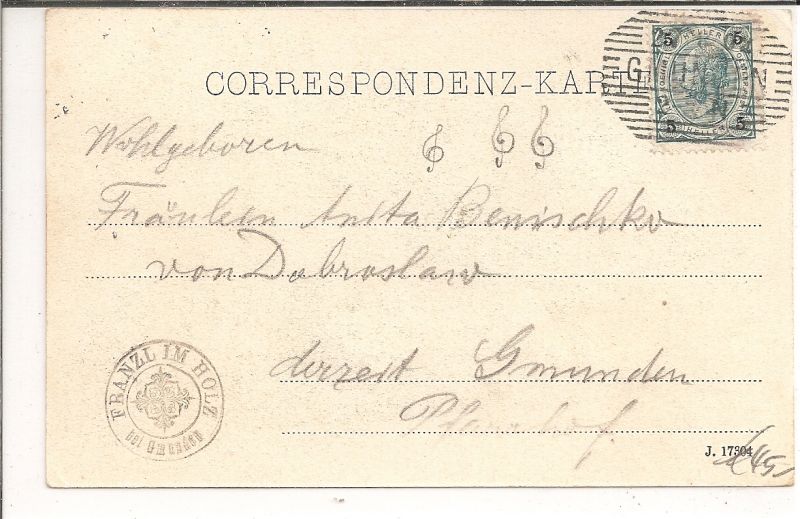 CORRESPONDENZ-KARTE
5 HELLER 5
5 HELLER 5
GMUNDEN
Wohlgeboren
Fräulein Anita Benischko
von Dobroslaw
derzeit Gmunden
Pfarrhof.
FRANZL IM HOLZ
bei Gmunden
J. 17304